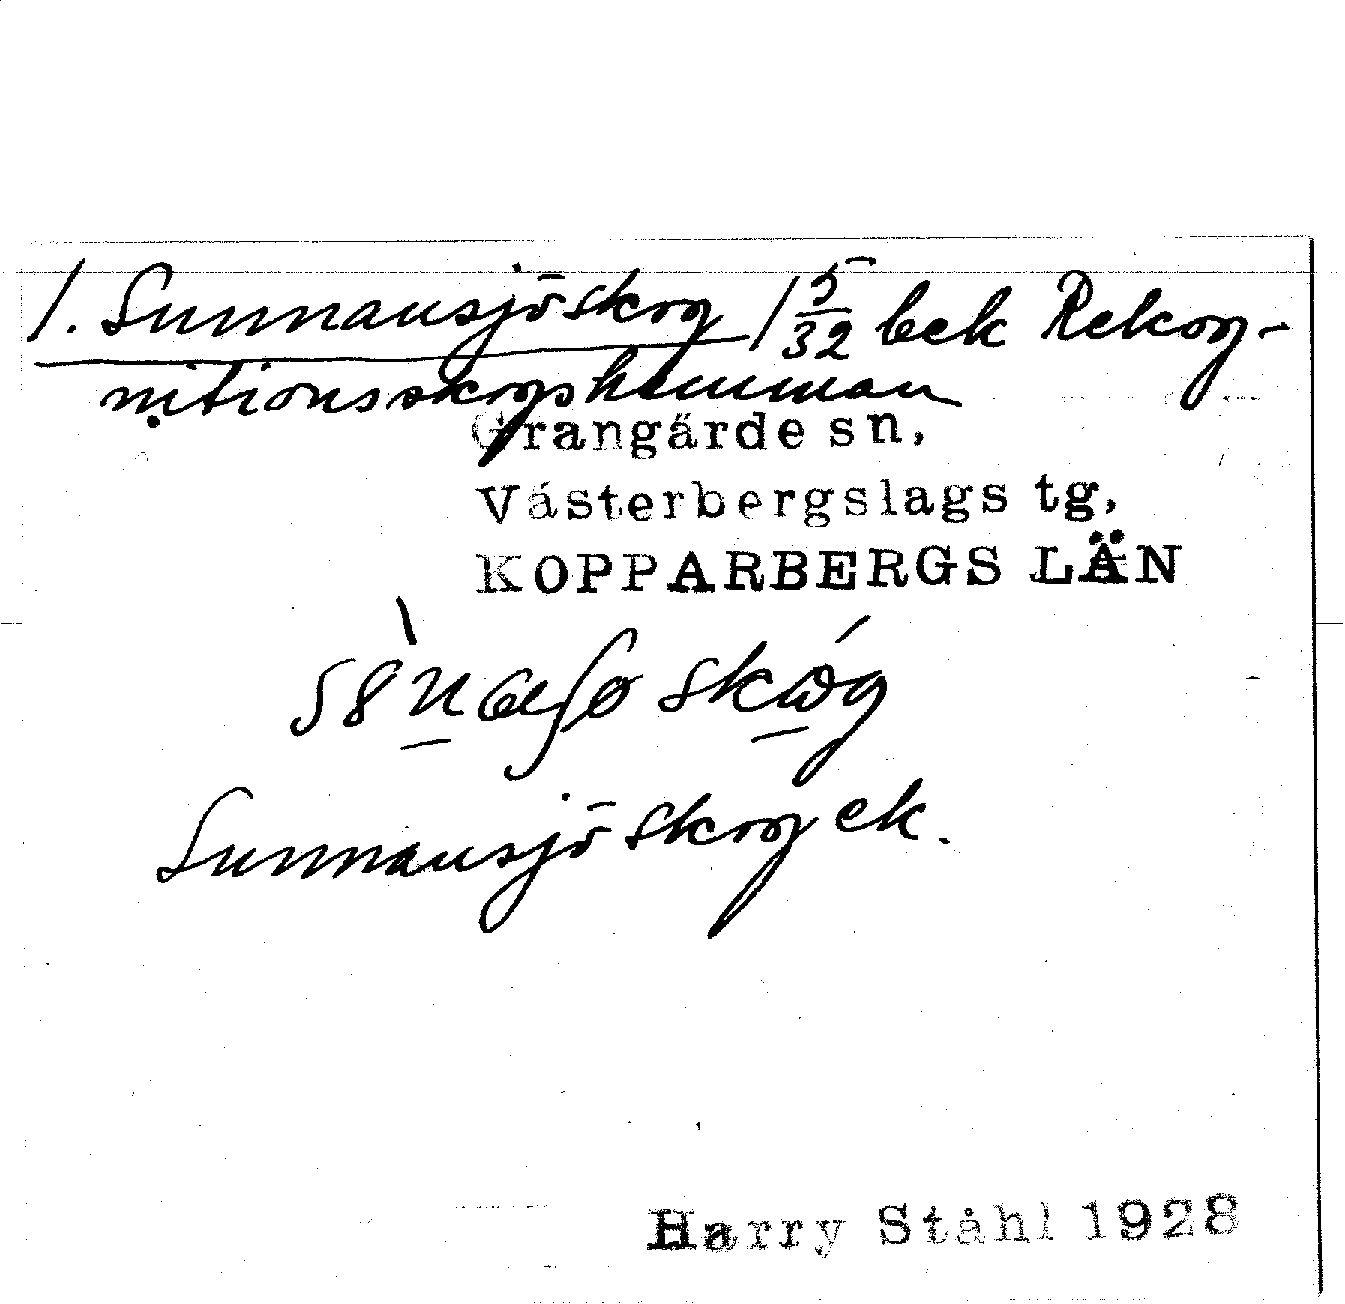 1. Sunnansjöskog 1 5/32 bek Rekog-
nitionsskogshemman
Grangärde sn,
Västerbergslags tg,
KOPPARBERGS LÄN
Sunnansjöskog ek.
Harry Ståhl 1928